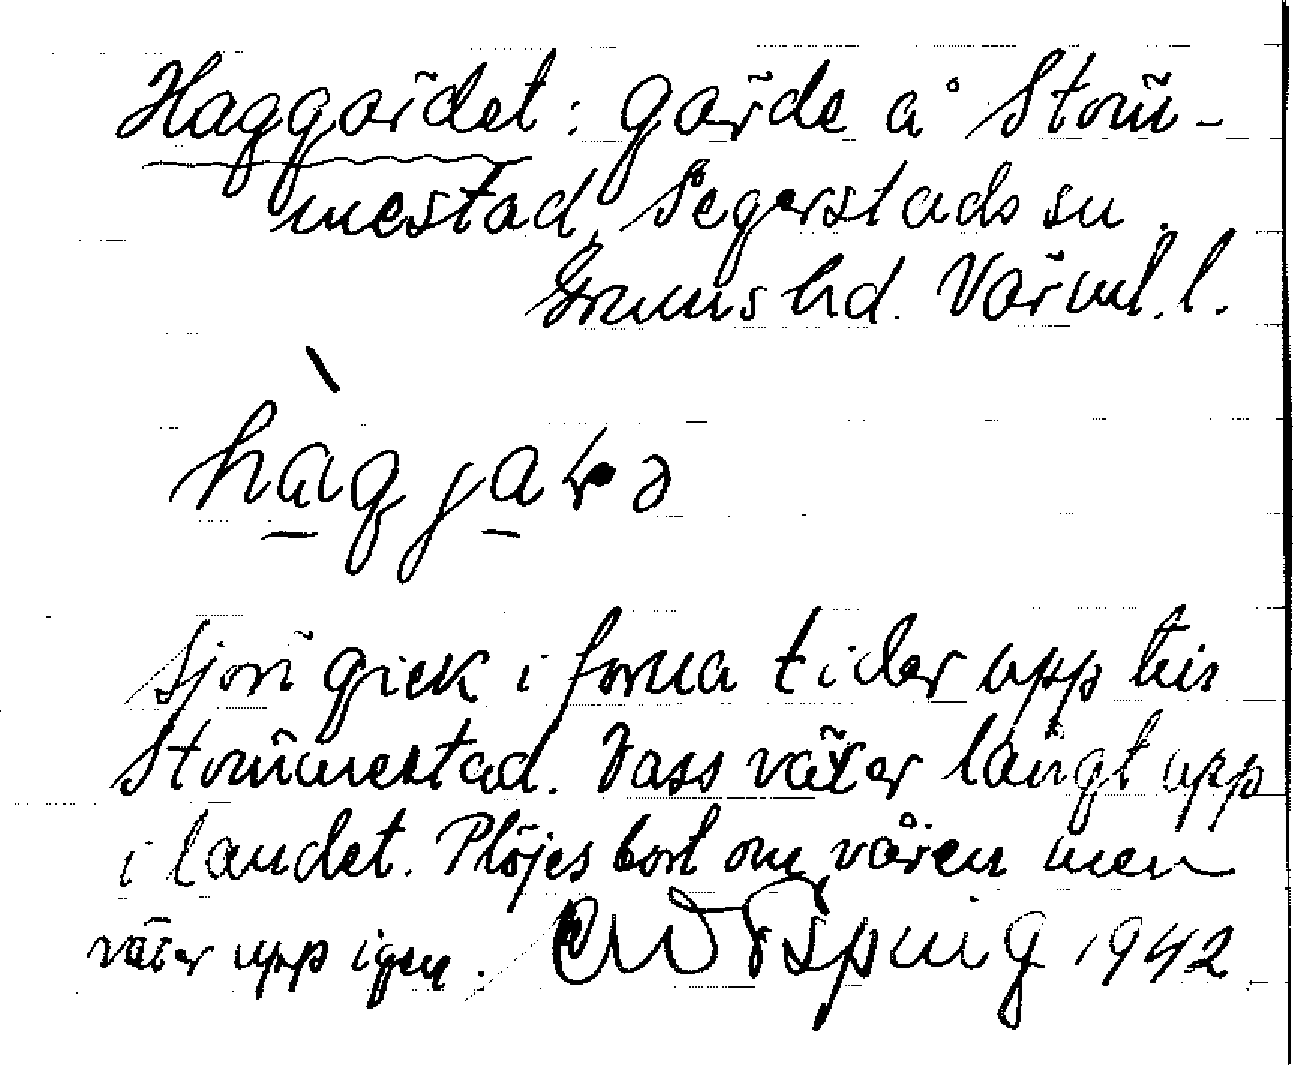 Haggärdet: gärde å Ström-
mestad, Segerstads sn.
Grums hd. Värml. l.
hàgjaɽə
Sjön gick i forna tider upp till
Strömmestad. Vass växer långt upp
i landet. Plöjes bort om våren men
växer upp igen. 1942